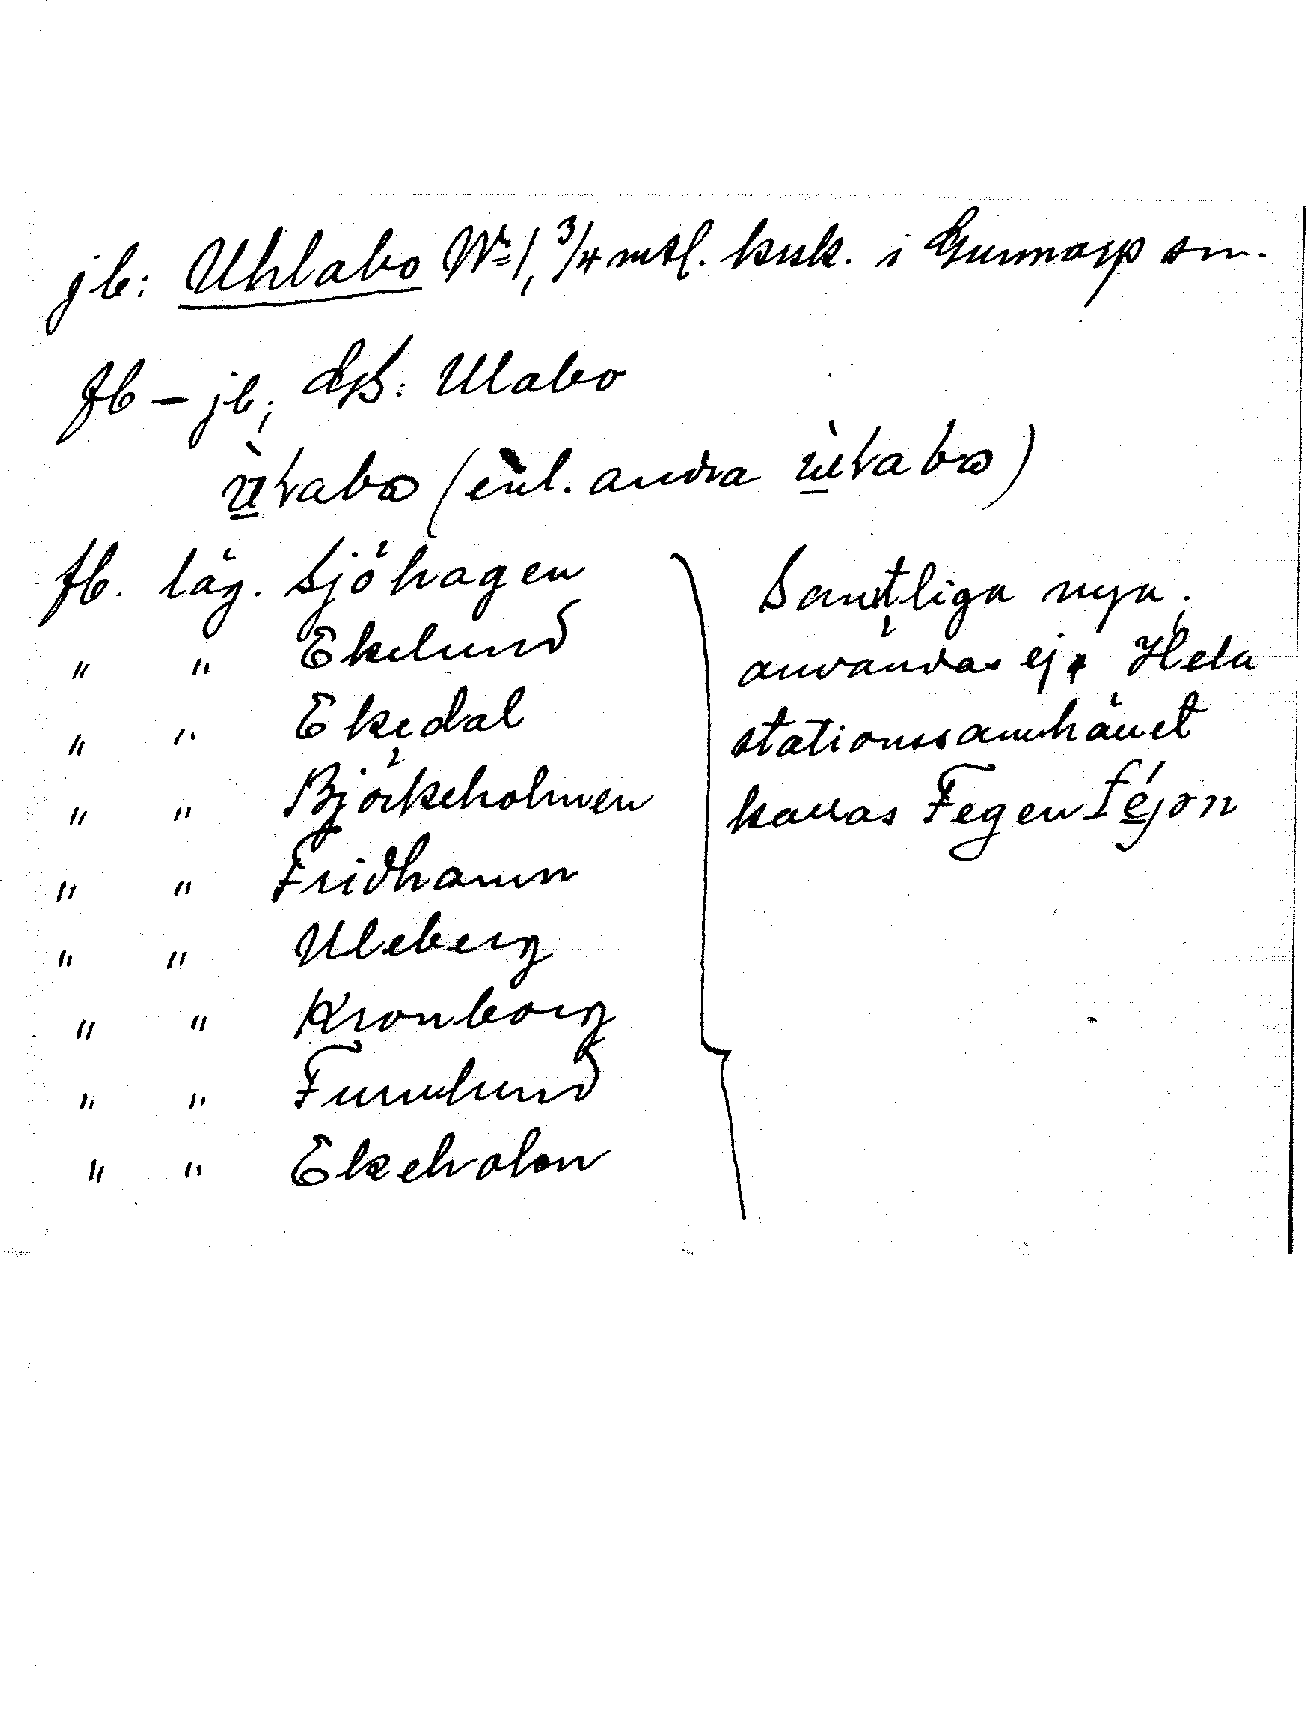 jb: Uhlabo Nr 1, 3/4 mtl. krsk. i Gunnarp sn.
fb – jb, GsK: Ulabo
ùlabo (enl. andra ùlabo)
fb. läg. Sjöhagen
" " Ekelund
" " Ekedal
" " Björkeholmen
" " Fridhamn
" " Uleberg
" " Kronborg
" " Furulund
" " Ekeholm
Samtliga nya;
användas ej. Hela
stationssamhället
kallas Fegen féjon